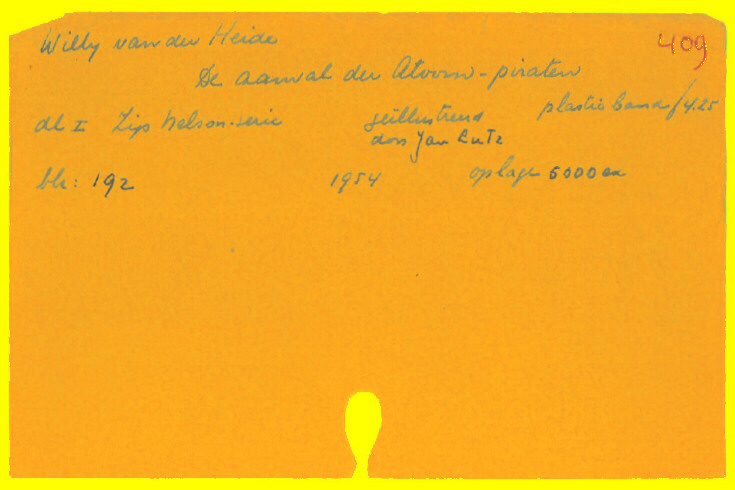 Willy van der Heide 409
De aanval der Atoom-piraten
dl I Zip Nelson-serie geïllustreerd plastic band f 4.25
door Jan Lutz
blz: 192 1954 oplage 5000 ex